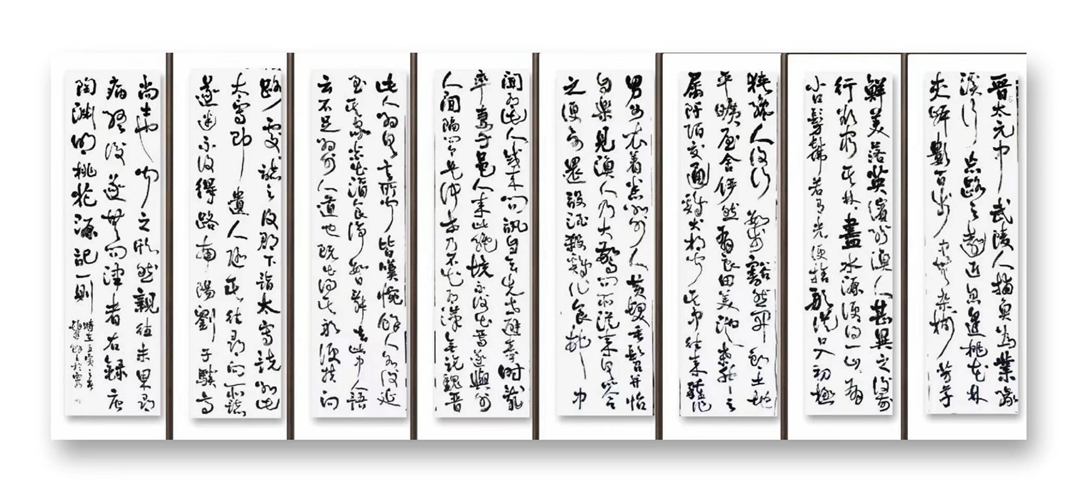 晋太元中武陵人捕魚為業緣
溪行忘路之遠近忽逢桃花林
夾岸數百步中無雜樹芳草
鮮美落英繽紛漁人甚異之復前
行欲窮其林盡水源便得一山有
小口髣髴若有光便捨船從口入初極
狹纔人復行數步豁然開朗土地
平曠屋舍儼然有良田美池桑竹之
屬阡陌交通雞犬相聞其中往来種作
男女衣着悉如外人黄髮垂髫并怡
自樂見漁人乃大驚問所從来具答
之便要還設酒殺雞作食村中
聞有此人咸来問訊自云先世避秦時亂
率妻子邑人来此絶境不復出焉遂與外
人間隔問今是何世乃不知有漢無論魏晉
此人為具言所聞皆嘆惋餘人各復延
至其家皆出酒食停數日辭去此中人語
云不足為外人道也既出得其船便扶向
路處誌之及郡下詣太守説如此
太守即遣人隨其往尋向所誌
遂迷不復得路南陽劉子驥高
尚士也聞之欣然親往未果尋
病終後遂無問津者右録
陶淵明桃花源記一則